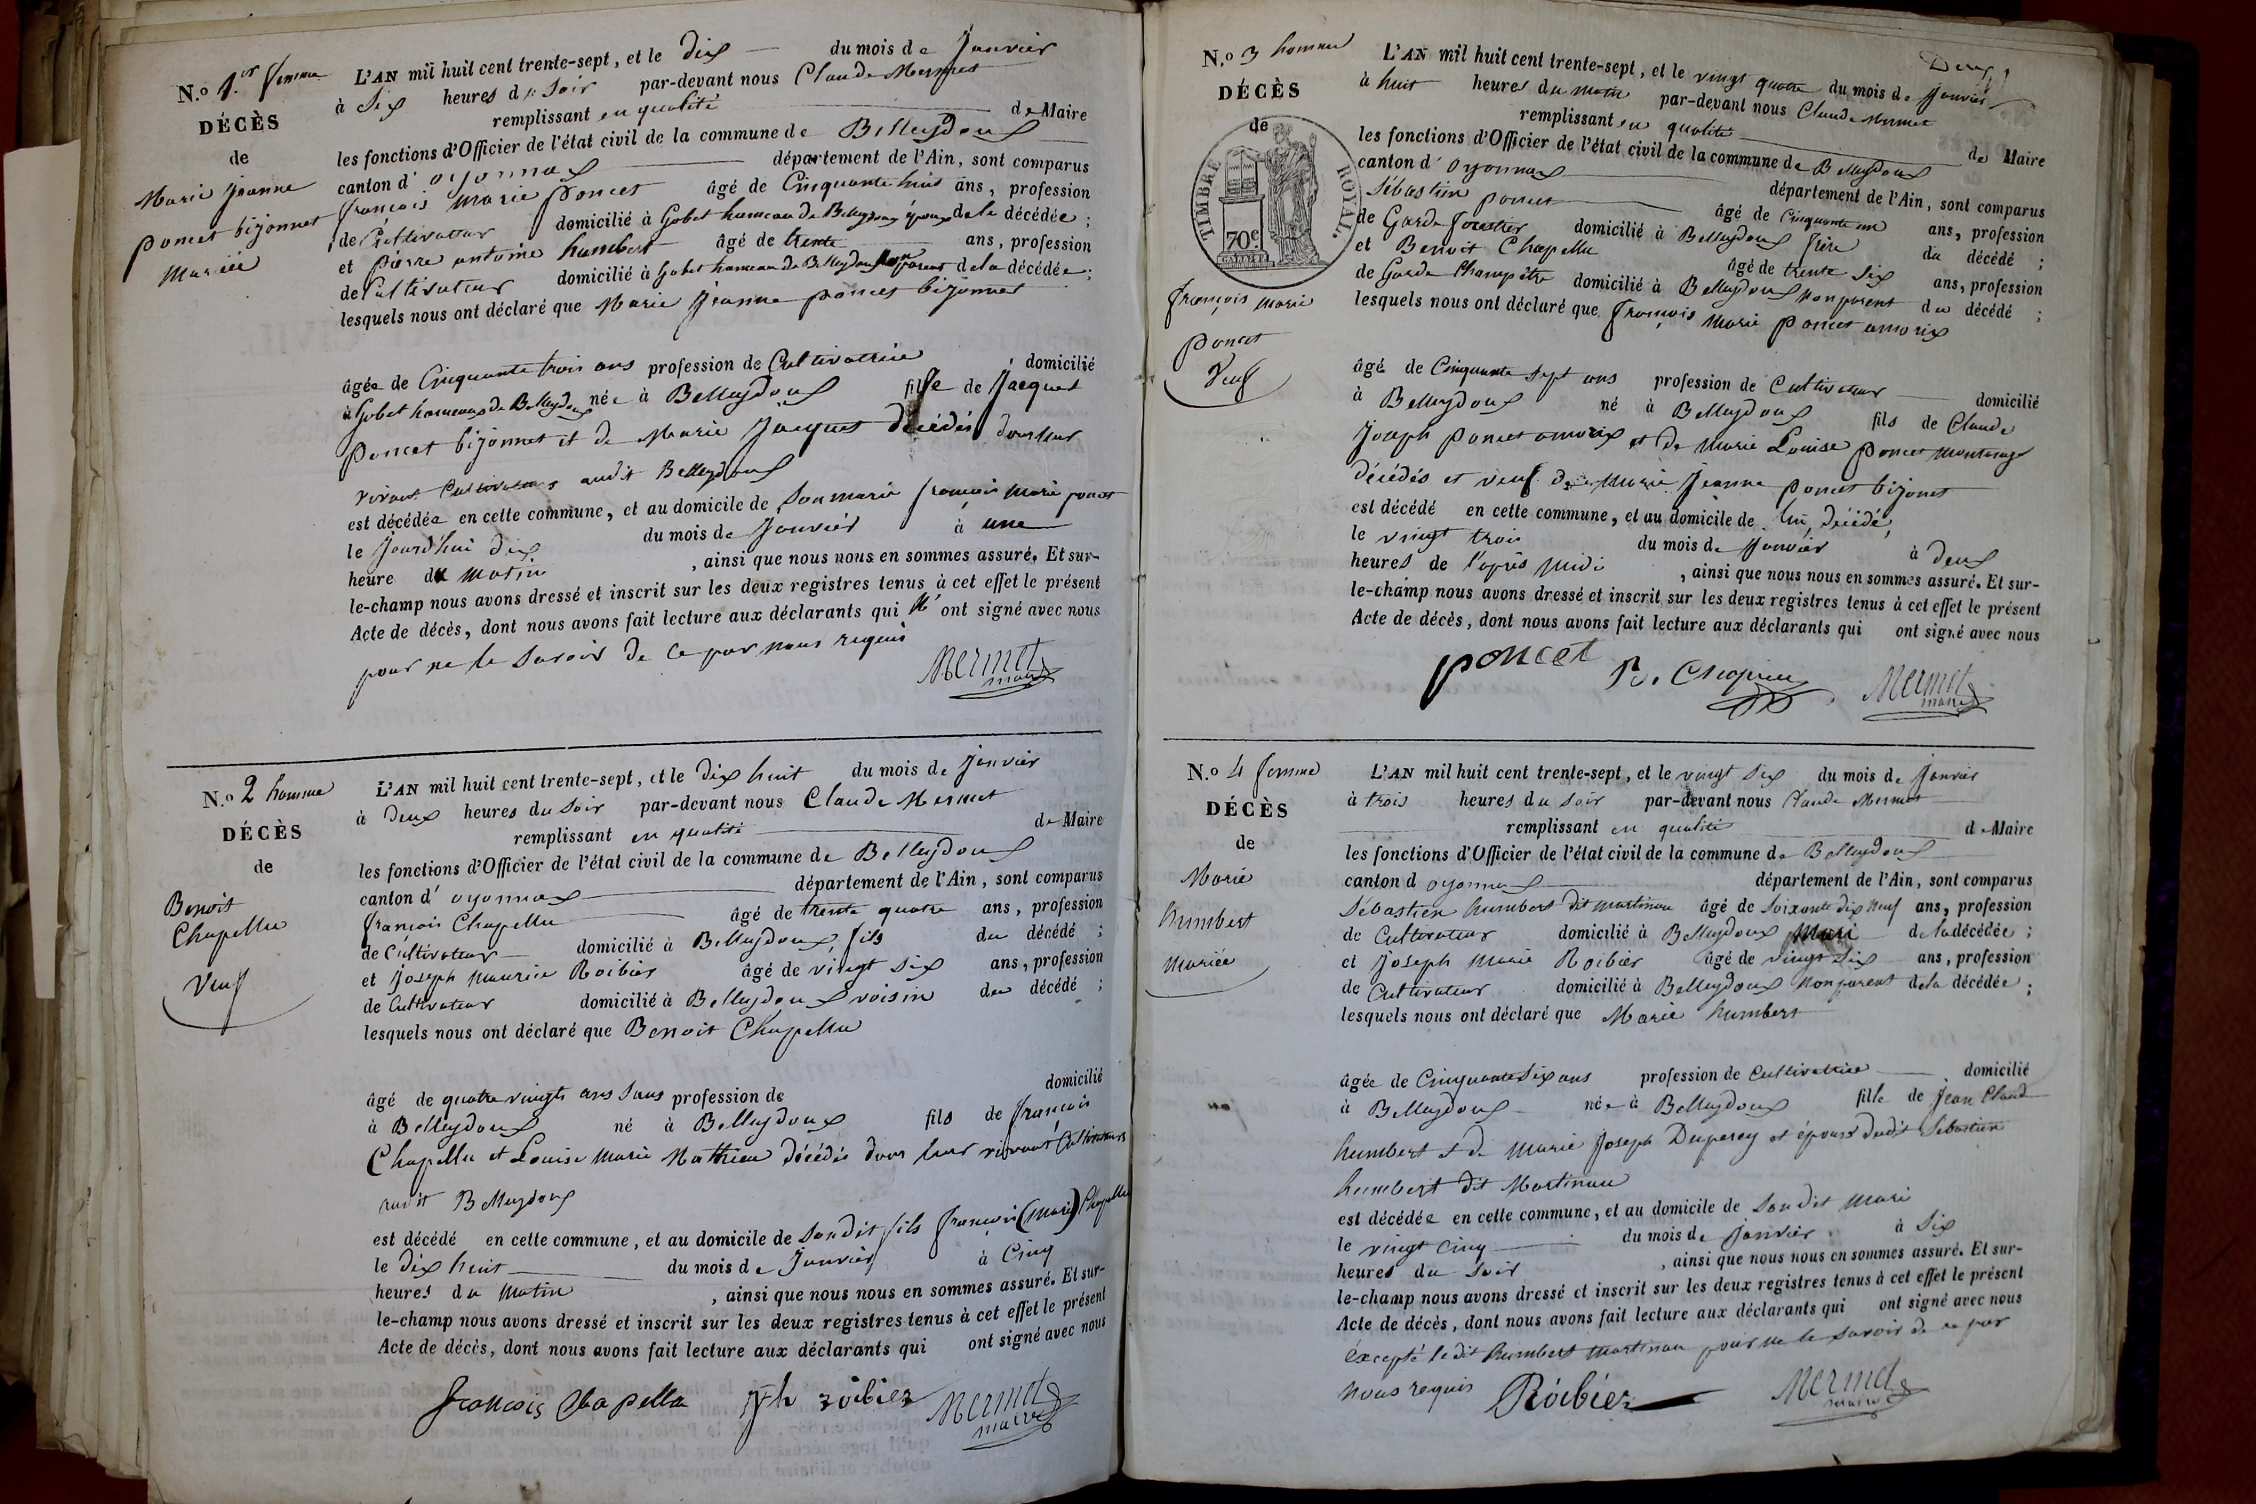 N.o 1.er femme
DÉCÈS
de
Marie Jeanne
poncet bizonnet
Mariée
L'AN mil huit cent trente-sept, et le dix du mois de Janvier
à Six heures du Soir par-devant nous Claude Mermet
remplissant en qualité de Maire
les fonctions d'Officier de l'état civil de la commune de Belleydoux
canton d'oyonnax département de l'Ain, sont comparus
françois Marie poncet âgé de Cinquante huit ans, profession
de Cultivateur domicilié à Gobet hameau de Belleydoux époux de la décédée;
et pierre antoine humbert âgé de trente ans, profession
de Cultivateur domicilié à Gobet hameau de Belleydoux non parent de la décédée;
lesquels nous ont déclaré que Marie Jeanne poncet bizonnet
âgée de Cinquante trois ans profession de Cultivatrice domicilié
à Gobet hameau de Belleydoux née à Belleydoux fille de Jacques
Poncet bizonnet et de Marie Jacquet décédés dans leur
vivant Cultivateurs audit Belleydoux
est décédée en cette commune, et au domicile de Son marie françois Marie poncet
le Jourd'hui dix du mois de Janvier à une
heure du Matin, ainsi que nous nous en sommes assuré. Et sur-
le-champ nous avons dressé et inscrit sur les deux registres tenus à cet effet le présent
Acte de décès, dont nous avons fait lecture aux déclarants qui n'ont signé avec nous
pour ne le Savoir de ce par nous requis
Mermet
maire
N.o 2 homme
DÉCÈS
de
Benoit
Chapellu
Veuf
L'AN mil huit cent trente-sept, et le dix huit du mois de Janvier
à deux heures du Soir par-devant nous Claude Mermet
remplissant en qualité de Maire
les fonctions d'Officier de l'état civil de la commune de Belleydoux
canton d'oyonnax département de l'Ain, sont comparus
françois Chapellu âgé de trente quatre ans, profession
de Cultivateur domicilié à Belleydoux, fils du décédé;
et Joseph Maurice Roibier âgé de vingt Six ans, profession
de Cultivateur domicilié à Belleydoux voisin du décédé;
lesquels nous ont déclaré que Benoit Chapellu
âgé de quatre vingts ans Sans profession de domicilié
à Belleydoux né à Belleydoux fils de françois
Chapellu et Louise Marie Mathieu décédés dans leur vivant Cultivateurs
audit Belleydoux
est décédé en cette commune, et au domicile de Sondit fils françois (Marie) Chapellu
le dix huit du mois de Janvier à Cinq
heures du Matin, ainsi que nous nous en sommes assuré. Et sur-
le-champ nous avons dressé et inscrit sur les deux registres tenus à cet effet le présent
Acte de décès, dont nous avons fait lecture aux déclarants qui ont signé avec nous
francois Chapella Jph roibier Mermet
maire
Deux
N.o 3 homme
DÉCÈS
de
TIMBRE ROYAL.
70c.
françois Marie
Poncet
Veuf
L'AN mil huit cent trente-sept, et le vingt quatre du mois de Janvier
à huit heures du matin par-devant nous Claude Mermet
remplissant en qualité de Maire
les fonctions d'Officier de l'état civil de la commune de Belleydoux
canton d'oyonnax département de l'Ain, sont comparus
Sébastien poncet âgé de Cinquante un ans, profession
de Garde forestier domicilié à Belleydoux frère du décédé;
et Benoit Chapellu âgé de trente Six ans, profession
de Garde Champêtre domicilié à Belleydoux non parent du décédé;
lesquels nous ont déclaré que françois Marie poncet amorix
âgé de Cinquante Sept ans profession de Cultivateur domicilié
à Belleydoux né à Belleydoux fils de Claude
Joseph Poncet amorix et de Marie Louise poncet
décédés et veuf de Marie Jeanne poncet bizonet
est décédé en cette commune, et au domicile de lui, décédé,
le vingt trois du mois de Janvier à deux
heures de l'après midi, ainsi que nous nous en sommes assuré. Et sur-
le-champ nous avons dressé et inscrit sur les deux registres tenus à cet effet le présent
Acte de décès, dont nous avons fait lecture aux déclarants qui ont signé avec nous
poncet Mermet
maire
N.o 4 femme
DÉCÈS
de
Marie
humbert
Mariée
L'AN mil huit cent trente-sept, et le vingt Six du mois de Janvier
à trois heures du Soir par-devant nous Claude Mermet
remplissant en qualité de Maire
les fonctions d'Officier de l'état civil de la commune de Belleydoux
canton d oyonnax département de l'Ain, sont comparus
Sébastien humbert dit martinan âgé de Soixante dix Neuf ans, profession
de Cultivateur domicilié à Belleydoux Mari de la décédée;
et Joseph Marie Roibier âgé de vingt Six ans, profession
de Cultivateur domicilié à Belleydoux Non parent de la décédée;
lesquels nous ont déclaré que Marie humbert
âgée de Cinquante Six ans profession de Cultivatrice domicilié
à Belleydoux née à Belleydoux fille de Jean Claude
humbert et de Marie Joseph Duperey et épouse dudit Sébastien
humbert dit Martinan
est décédée en cette commune, et au domicile de Son dit Mari
le vingt Cinq du mois de Janvier à Six
heures du Soir, ainsi que nous nous en sommes assuré. Et sur-
le-champ nous avons dressé et inscrit sur les deux registres tenus à cet effet le présent
Acte de décès, dont nous avons fait lecture aux déclarants qui ont signé avec nous
Excepté le dit humbert Martinan pour ne le Savoir de ce par
Nous requis Roibier Mermet
maire